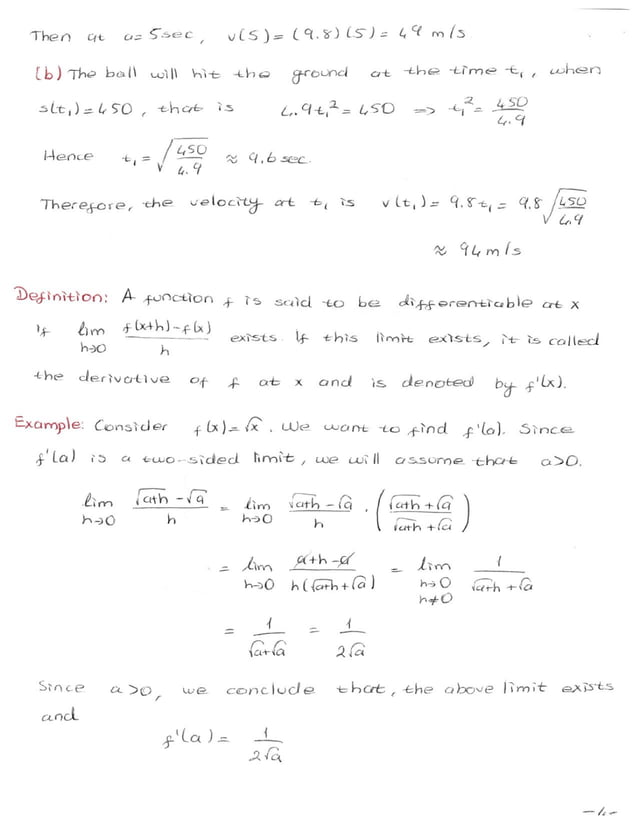 Then at a=5sec, v(5)=(9.8)(5)=49 m/s
(b) The ball will hit the ground at the time t₁, when
s(t₁)=450, that is 4.9t₁²=450 => t₁²=450/4.9
Hence t₁=√(450/4.9) ≈ 9.6sec.
Therefore, the velocity at t₁ is v(t₁)=9.8t₁=9.8√(450/4.9)
≈ 94m/s
Definition: A function f is said to be differentiable at x
if lim h→0 (f(x+h)-f(x))/h exists. If this limit exists, it is called
the derivative of f at x and is denoted by f'(x).
Example: Consider f(x)=√x. We want to find f'(a). Since
f'(a) is a two-sided limit, we will assume that a>0.
lim h→0 (√(a+h)-√a)/h = lim h→0 (√(a+h)-√a)/h · ((√(a+h)+√a)/(√(a+h)+√a))
= lim h→0 (a+h-a)/(h(√(a+h)+√a)) = lim h→0 h≠0 1/(√(a+h)+√a)
= 1/(√a+√a) = 1/(2√a)
Since a>0, we conclude that, the above limit exists
and
f'(a)= 1/(2√a)
-4-